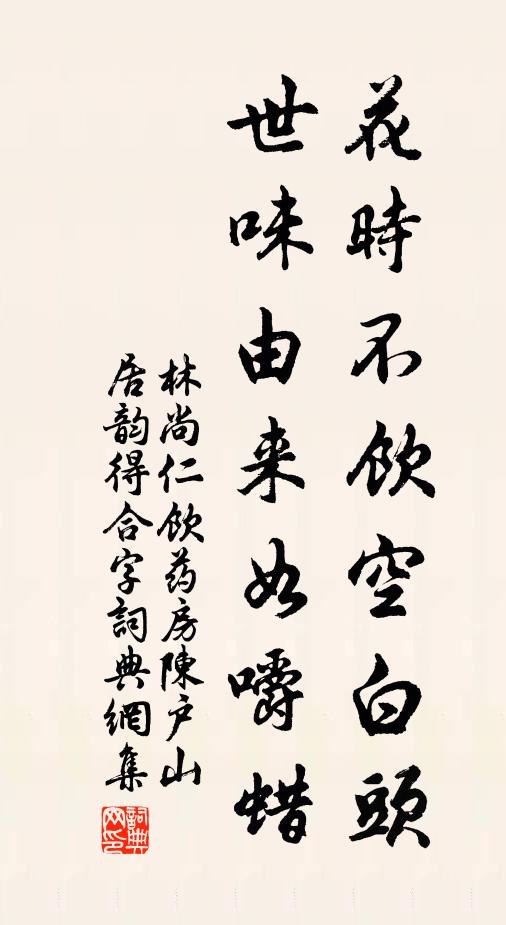 花時不飲空白頭
世味由来如嚼蜡
林尚仁飲药房陳户山
居韵得合字詞典網集
詞典
网印